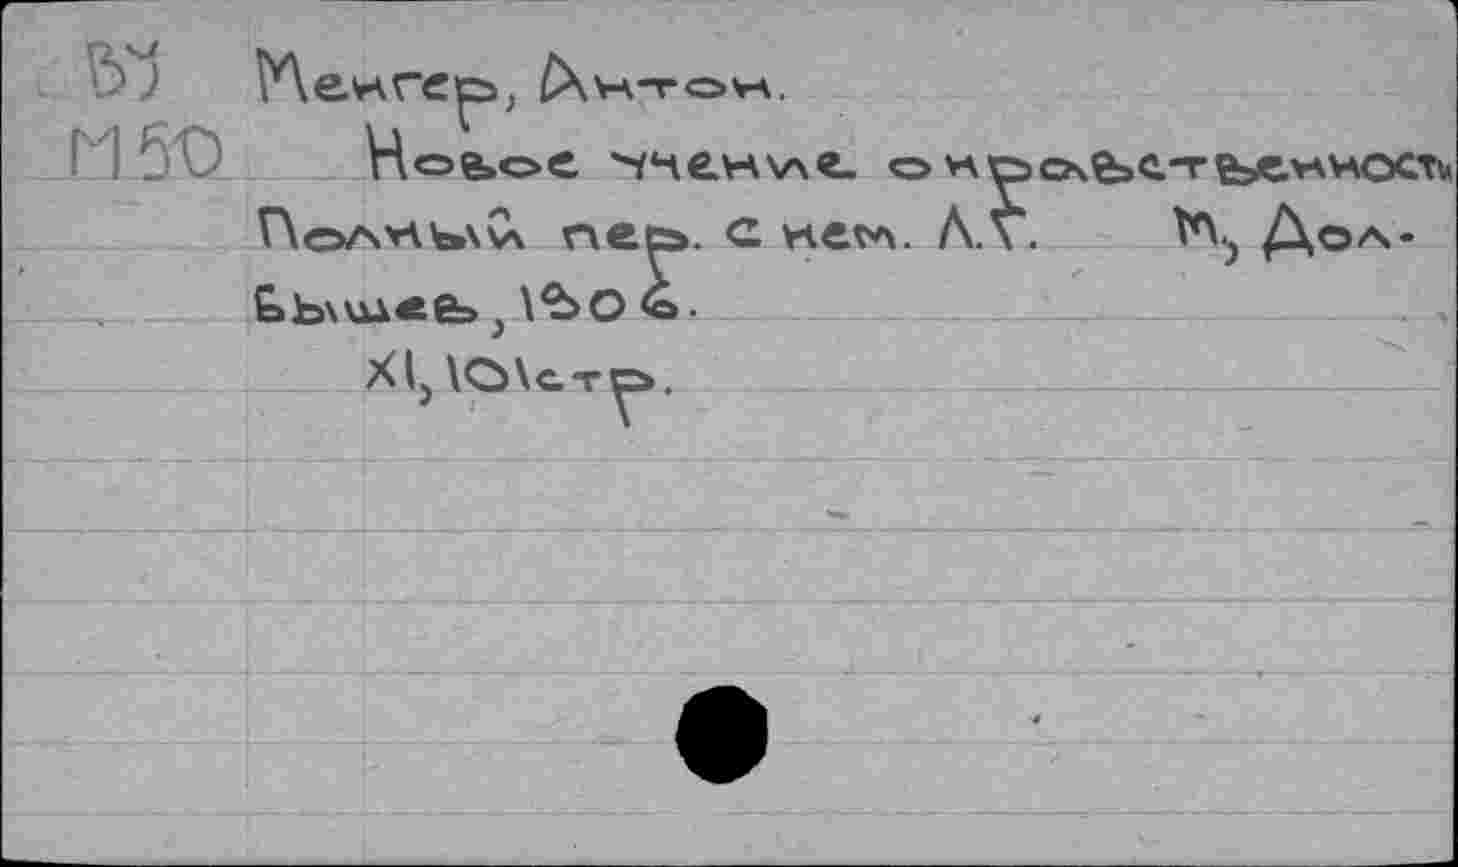 ВУ Менгер, Антон.
М50 Новое учение о нравственности
Полный пер. с нем. Л.Г. М., Дол-
бышев, 1906.
XI, 101 стр.